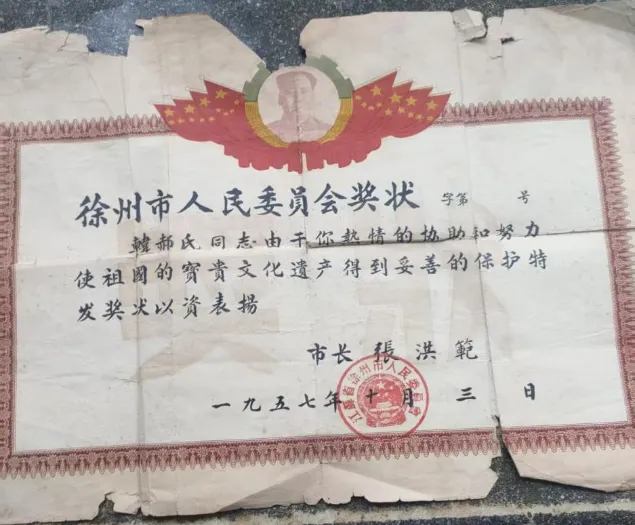 徐州市人民委员会奖状 字第 号
韓郝氏同志由于你热情的协助和努力
使祖國的寳貴文化遗产得到妥善的保护特
发奖状以资表揚
市长 張洪範
一九五七年十月三日
江苏省徐州市人民委員會